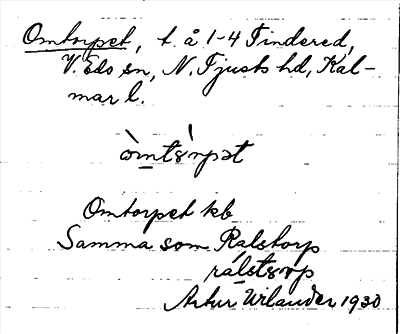 Omtorpet, t. å 1-4 Tindered,
V. Eds sn, N. Tjusts hd, Kal-
mar l.
òmtsr̀pət
Omtorpet kb
Samma som Ralstorp
rálstsrp
Artur Wilander 1930